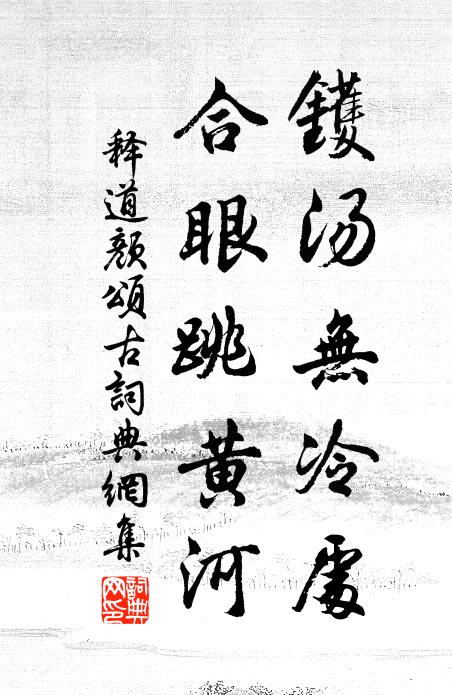 鑊汤無冷處
合眼跳黄河
释道颜頌古詞典網集
詞典网印